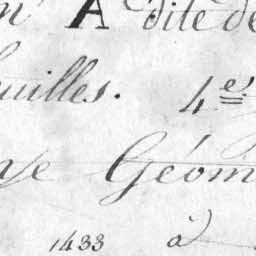 A dite de
uilles. 4es
Géom
1433 à